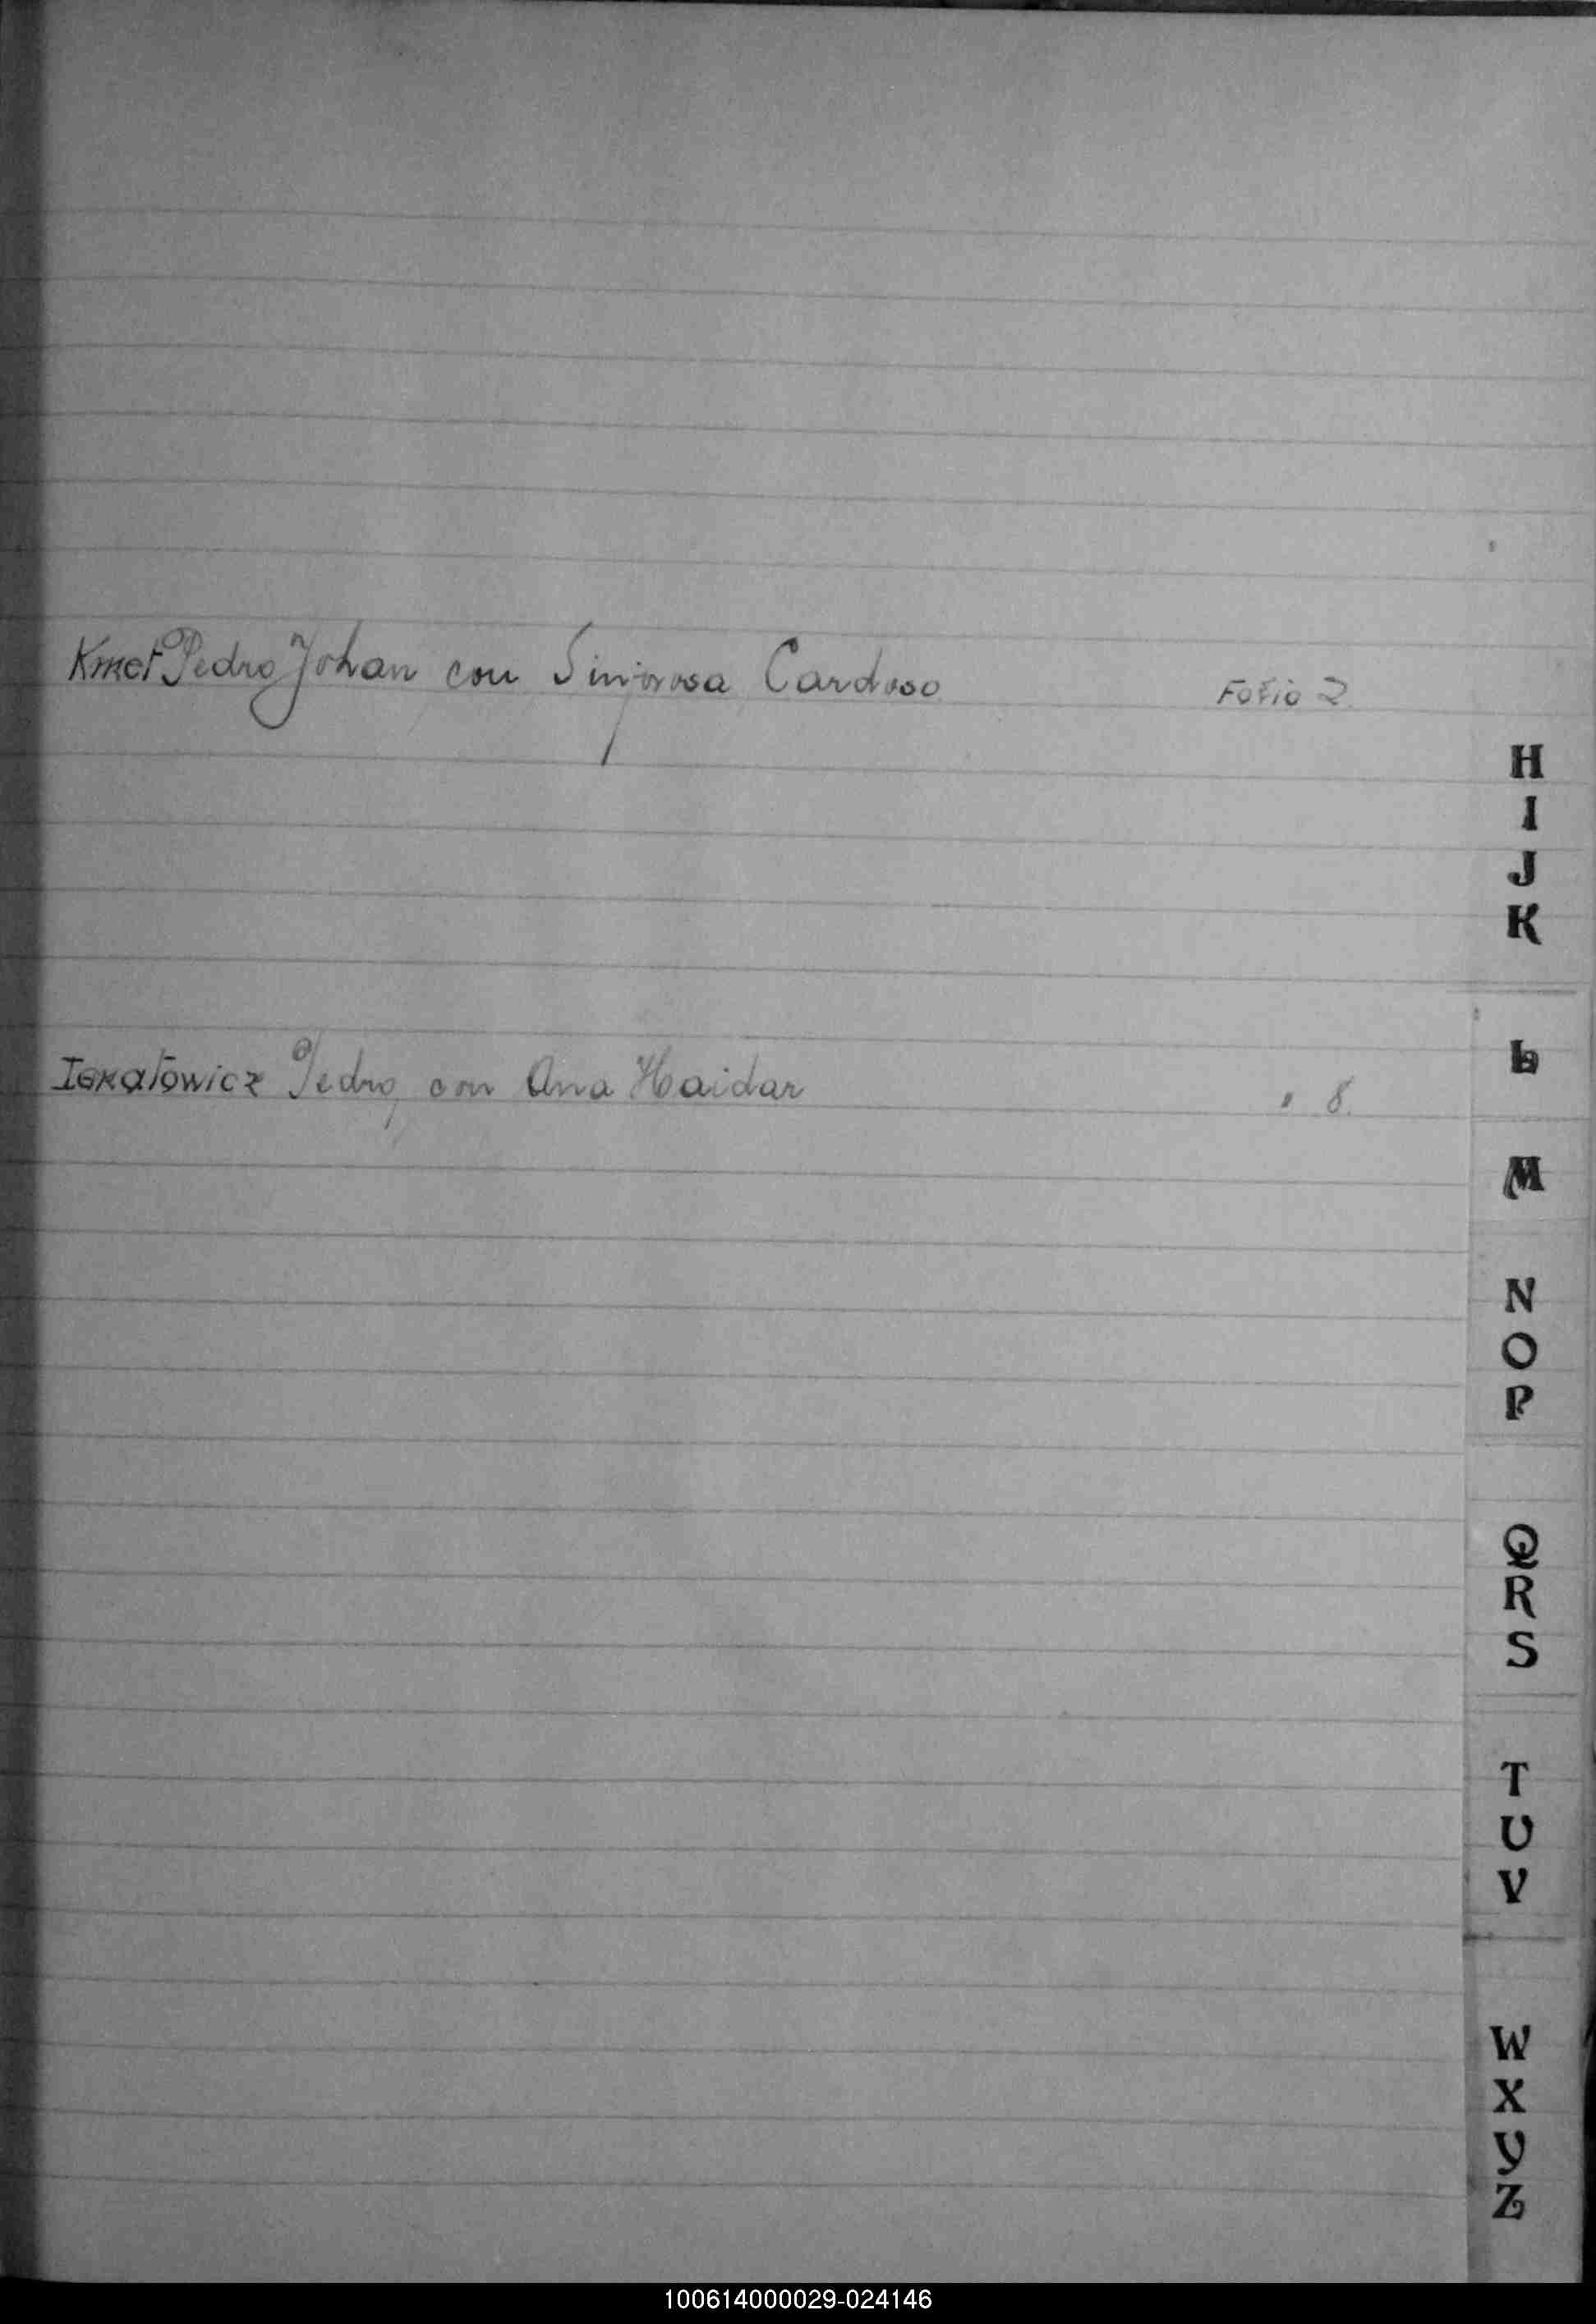 Kmet Pedro Johan con Sinforosa Cardoso Folio 2
Pedro con Ana Haidar " 8.
H
I
J
K
L
M
N
O
P
Q
R
S
T
U
V
W
X
Y
Z
100614000029-024146